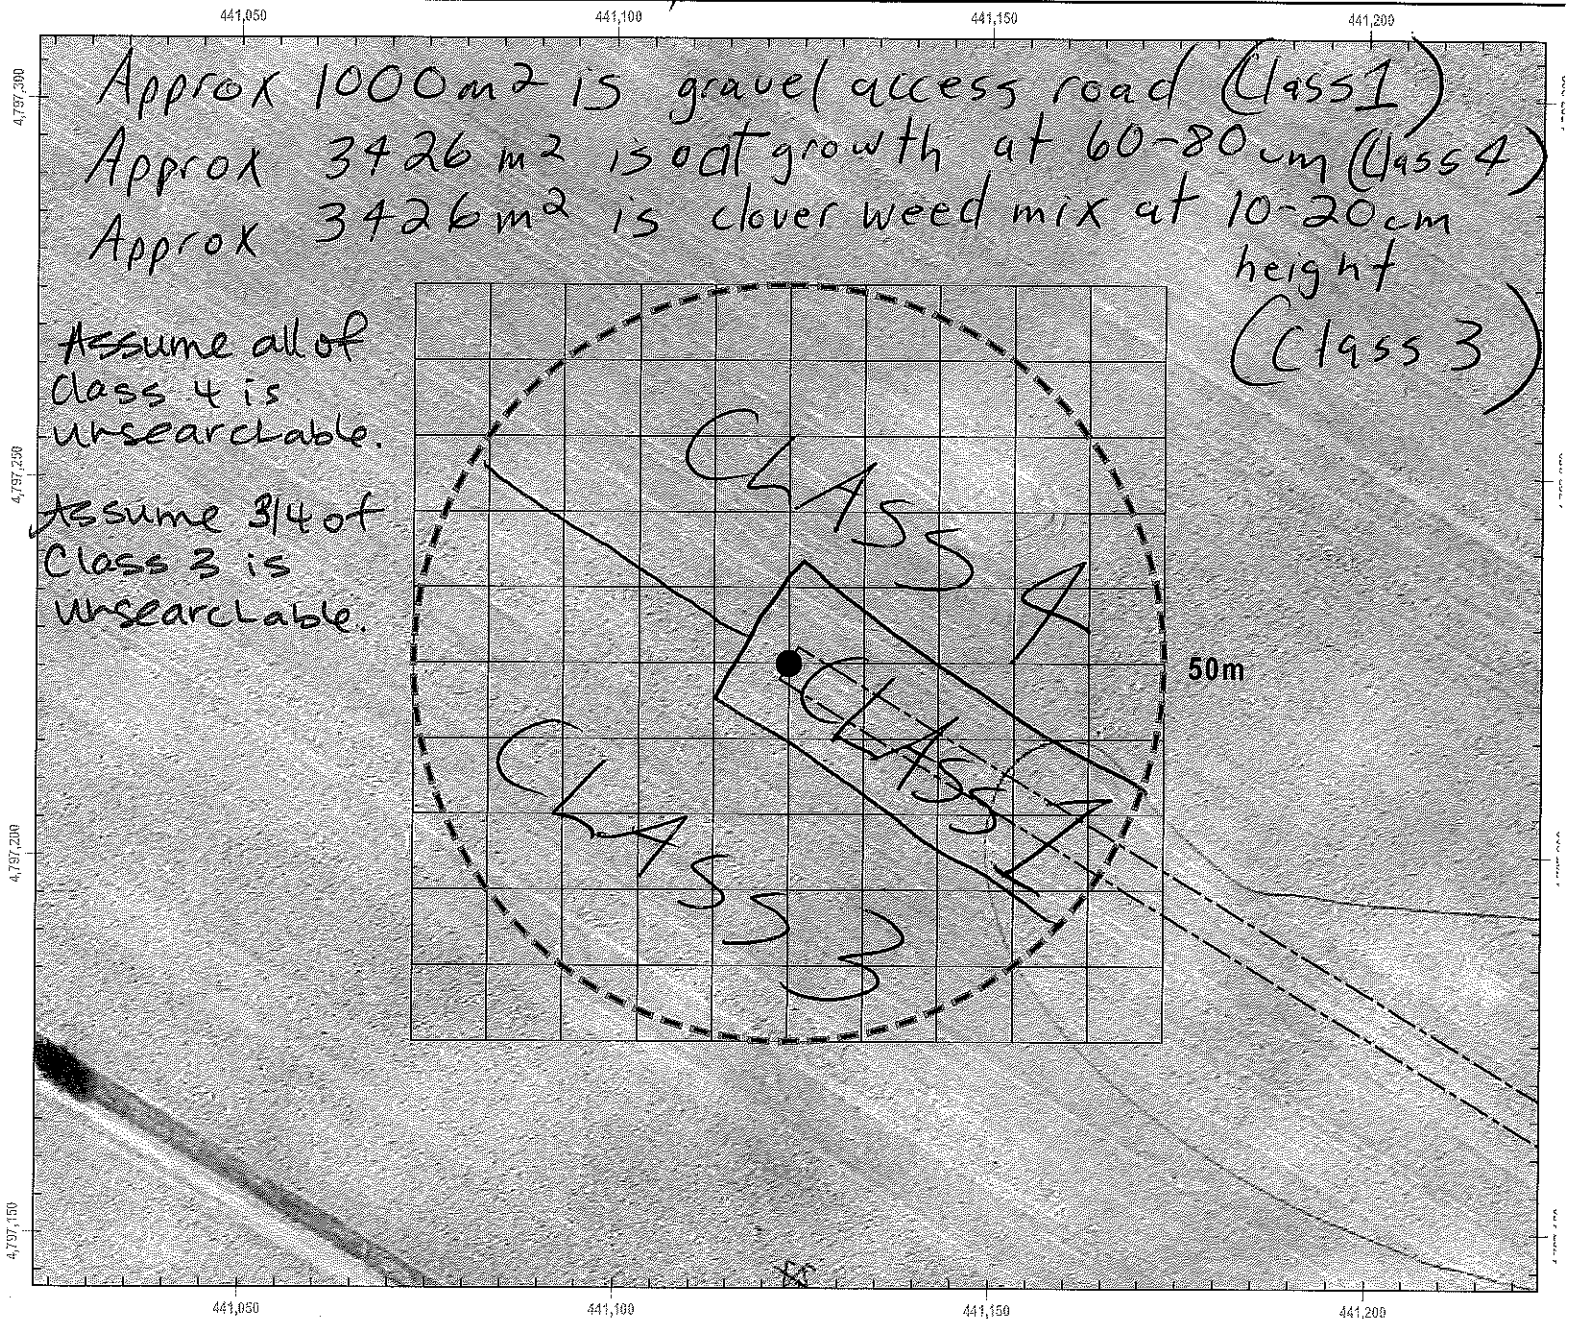 441,050 441,100 441,150 441,200
4,797,300
Approx 1000m² is gravel access road (Class 1)
Approx 3426 m² is oat growth at 60-80cm (Class 4)
Approx 3426m² is clover weed mix at 10-20cm
height
(Class 3)
Assume all of
Class 4 is
unsearchable.
4,797,250
Assume 3/4 of
Class 3 is
unsearchable.
CLASS 4
50m
CLASS 1
CLASS 3
4,797,200
4,797,150
441,050 441,100 441,150 441,200